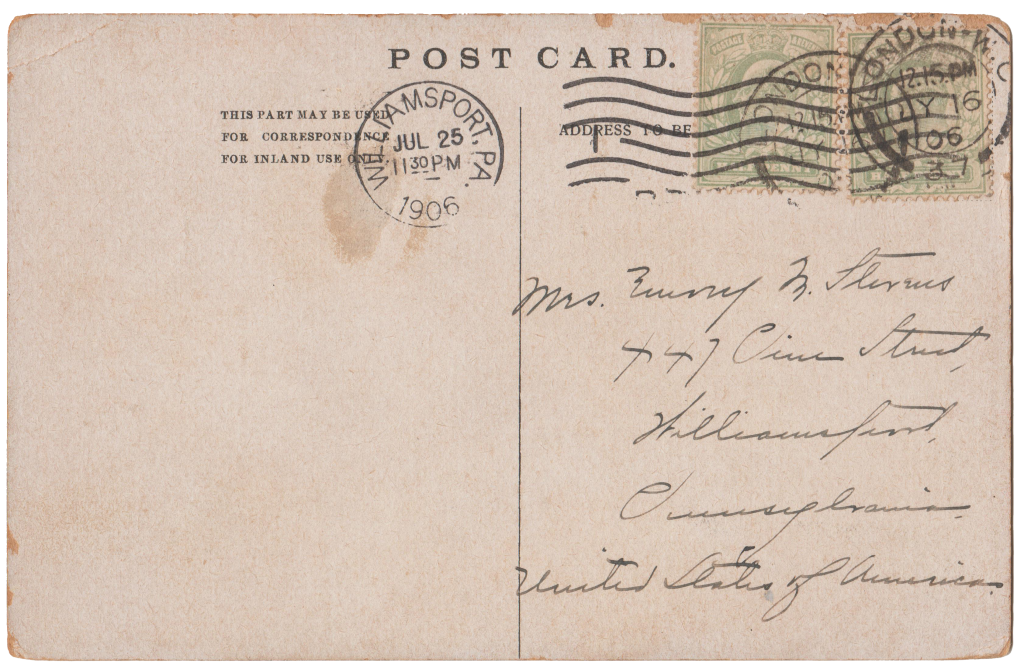 POST CARD.
THIS PART MAY BE USED
FOR CORRESPONDENCE
FOR INLAND USE ONLY.
ADDRESS TO BE
WILLIAMSPORT, PA.
JUL 25
11 30 PM
1906
LONDON
12.15
LONDON·W.C
12.15.PM
JY 16
06
37
Mrs. Emory M. Stevens
447 Pine Street,
Williamsport,
Pennsylvania,
United States of America.